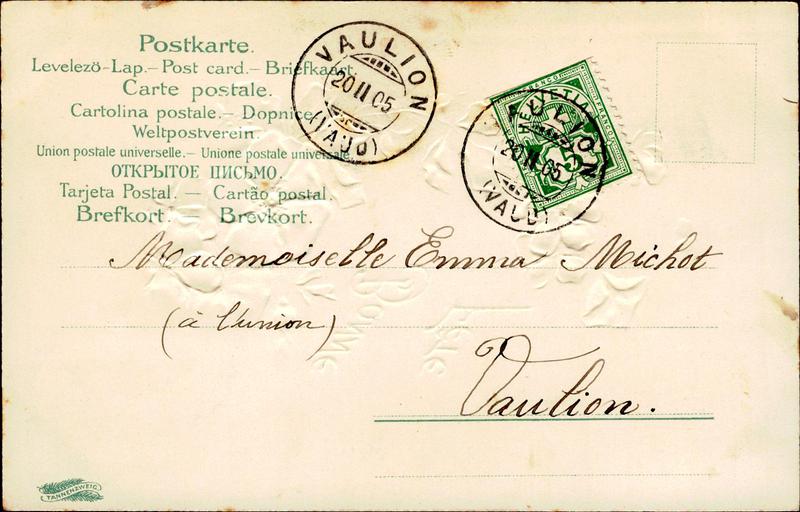 Postkarte.
Levelezö-Lap. — Post card. — Briefkaart.
Carte postale.
Cartolina postale. — Dopnice
Weltpostverein.
Union postale universelle. — Unione postale universale.
ОТКРЫТОЕ ПИСЬМО.
Tarjeta Postal. — Cartão postal.
Brefkort. — Brevkort.
VAULION
20 II 05
(VAUD)
FRANCO
HELVETIA
FRANCO
5
VAULION
20 II 05
(VAUD)
Mademoiselle Emma Michot
(à l'union)
Bonne
Fête
Vaulion.
TANNENZWEIG